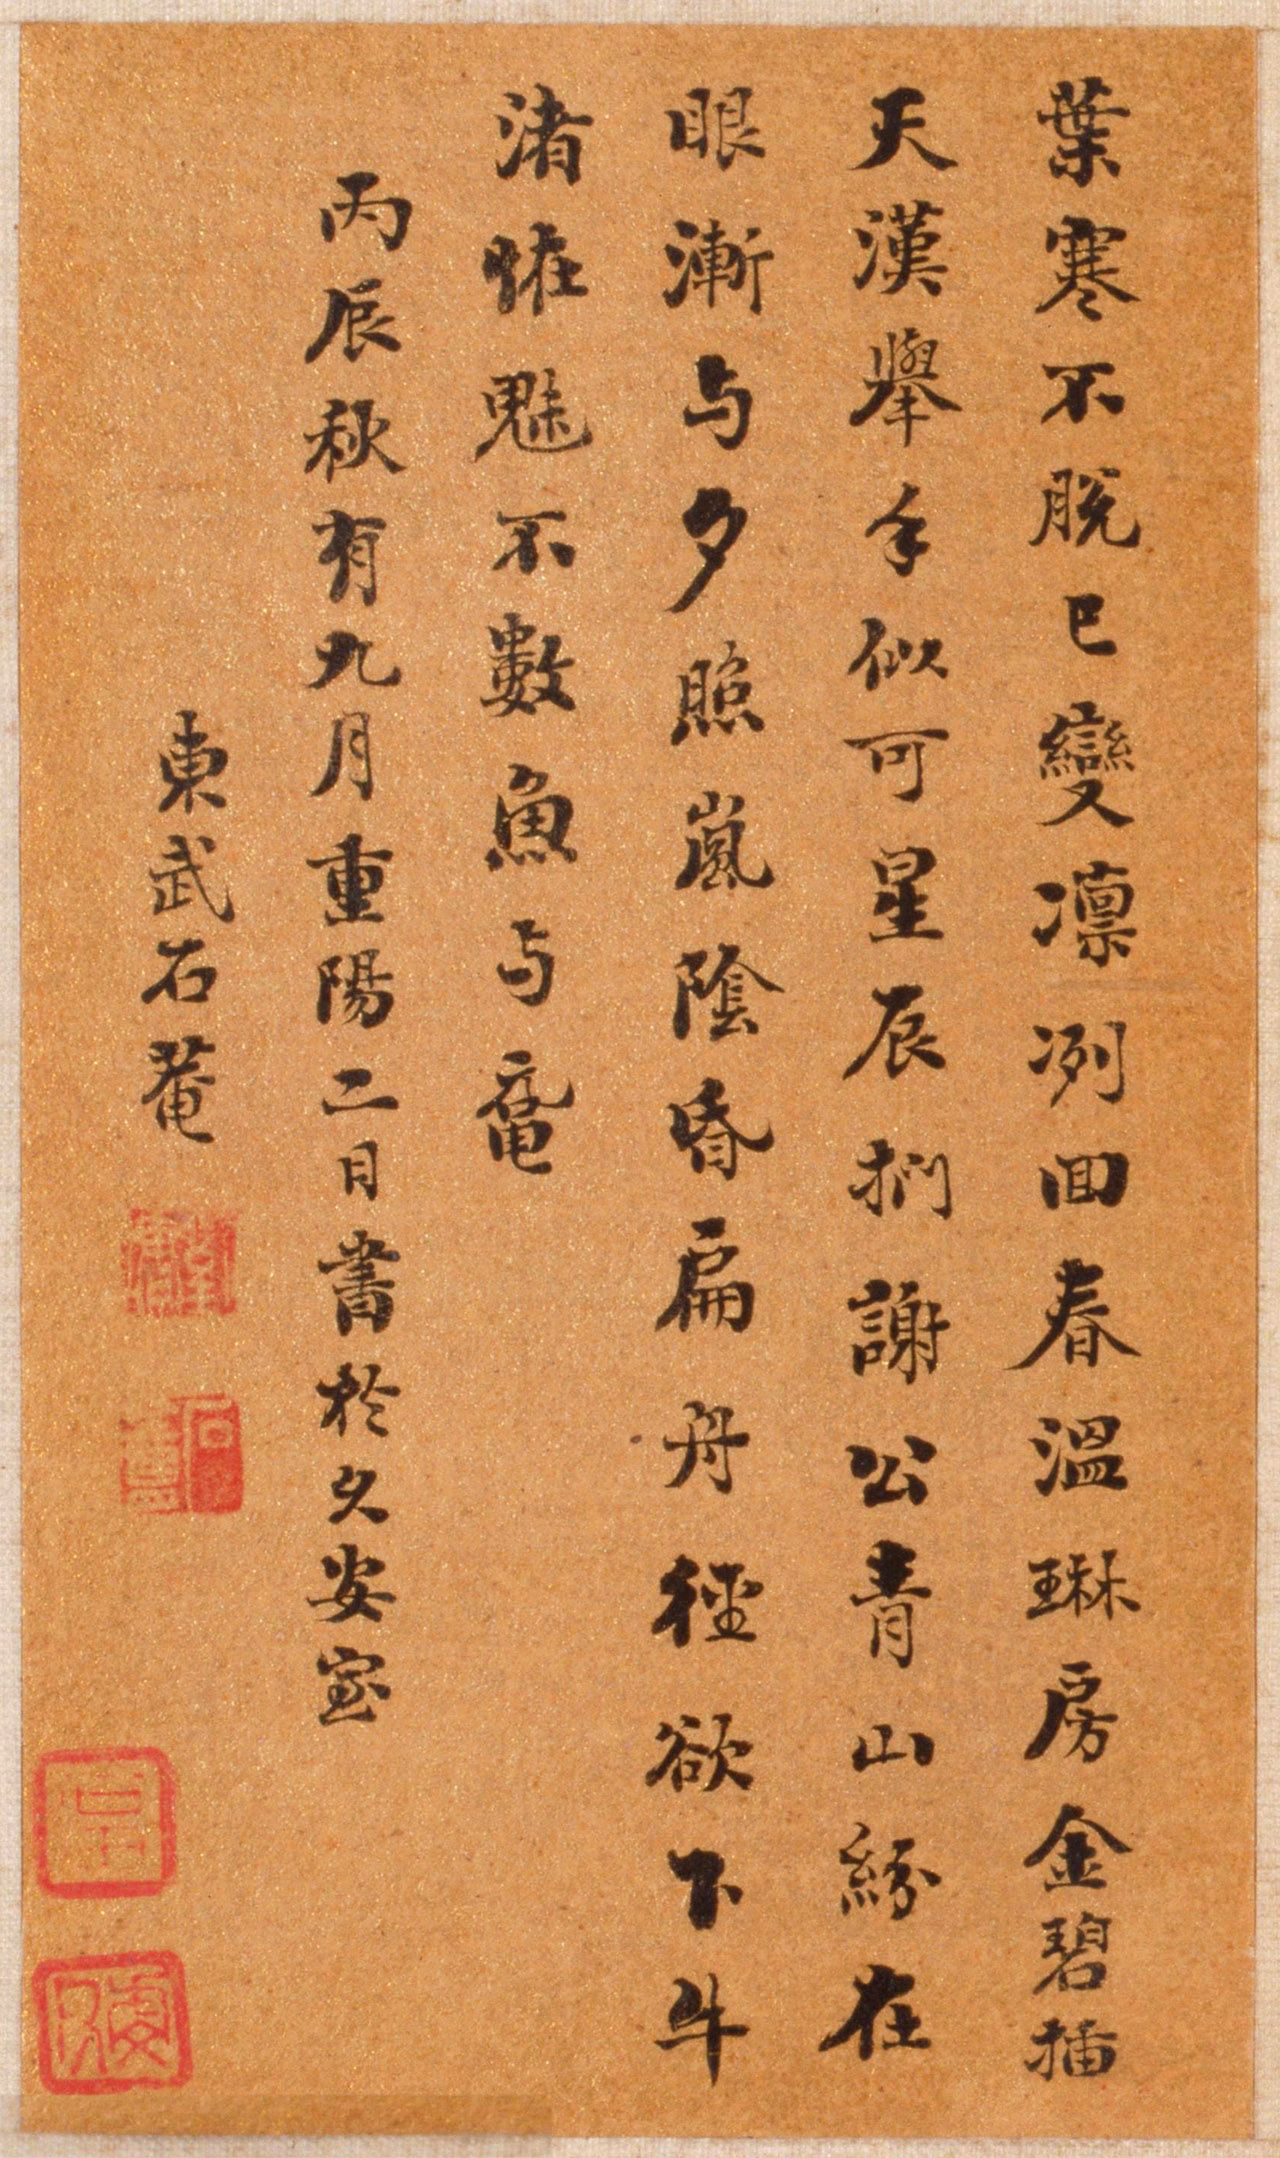 葉寒不脫已變凛冽回春溫琳房金碧插
天漢舉手似可星辰捫謝公青山紛在
眼漸与夕照嵐陰昏扁舟徑欲下牛
渚恠魅不數魚与黿
丙辰秋有九月重陽二日書於久安室
東武石菴